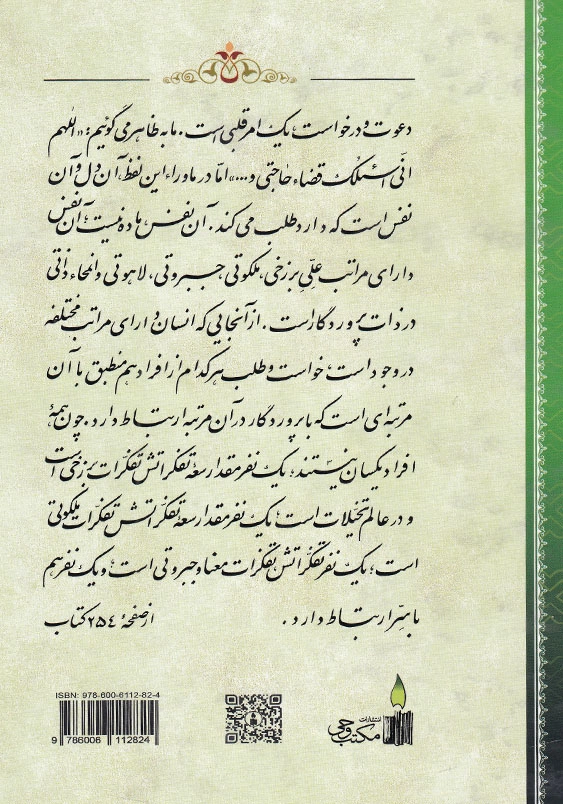 دعوت و درخواست، یک امر قلبی است. ما به ظاهر می گوئیم: «اللهم
انّی اسئلک قضاء حاجتی و...» امّا در ماوراء این لفظ، آن دل و آن
نفس است که دارد طلب می کند. آن نفس ماده نیست؛ آن نفس
دارای مراتب علّیِ برزخی، ملکوتی، جبروتی، لاهوتی و انحاء ذاتی
در ذات پروردگار است. از آنجایی که انسان دارای مراتب مختلفه
در وجود است، خواست و طلب هر کدام از افراد هم منطبق با آن
مرتبه ای است که با پروردگار در آن مرتبه ارتباط دارد. چون همهٔ
افراد یکسان نیستند؛ یک نفر مقدار سعهٔ تفکراتش تفکّرات برزخی است
و در عالم تخیلات است؛ یک نفر مقدار سعهٔ تفکّراتش تفکّرات ملکوتی
است؛ یک نفر تفکّراتش تفکّرات معنا و جبروتی است؛ و یک نفر هم
با سِرّ ارتباط دارد.
از صفحهٔ ۲۵۴ کتاب
ISBN: 978-600-6112-82-4
9 786006 112824
انتشارات
مکتب وحی